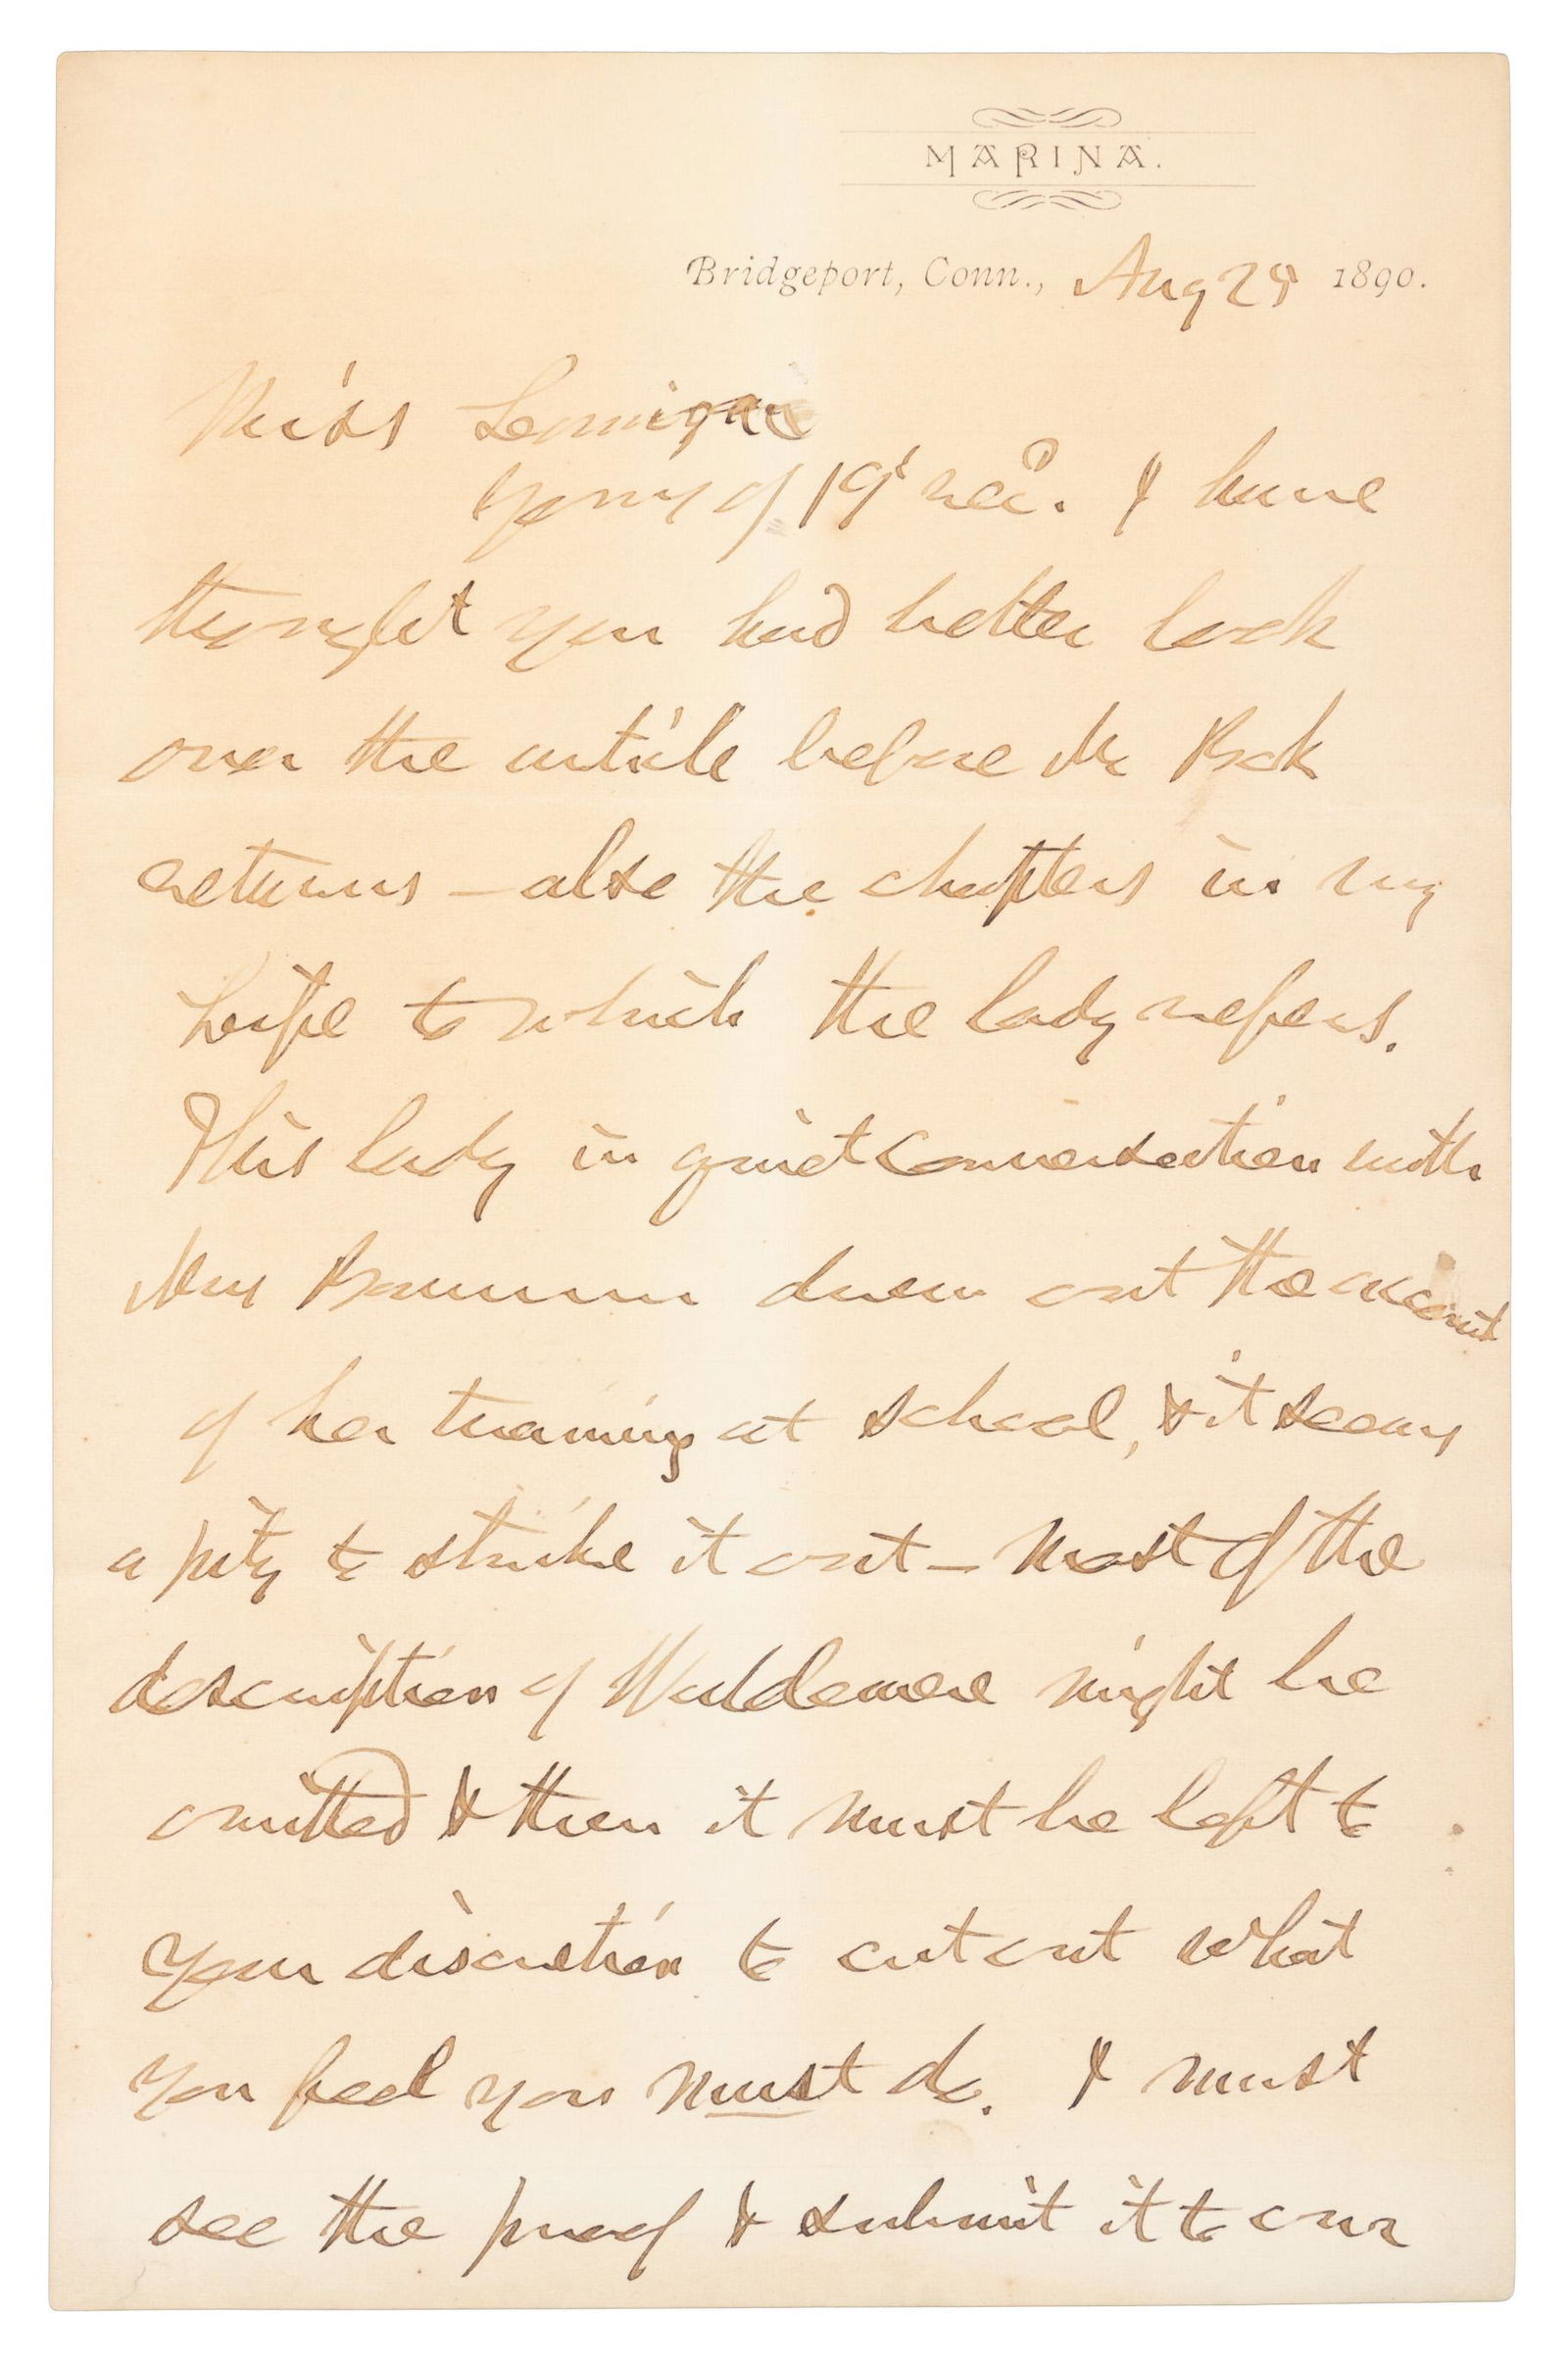 MARINA.
Bridgeport, Conn., Aug 29 1890.
Miss
Yours of 19t recd. I have
thought you had better look
over the article before Mr Bok
returns – also the chapters in my
Life to which the lady refers.
This lady in quiet conversation with
Mrs Barnum drew out the account
of her training at school, & it seems
a pity to strike it out – Most of the
description of Waldemere might be
omitted & then it must be left to
your discretion to cut out what
you feel you must do. I must
see the proof & submit it to our